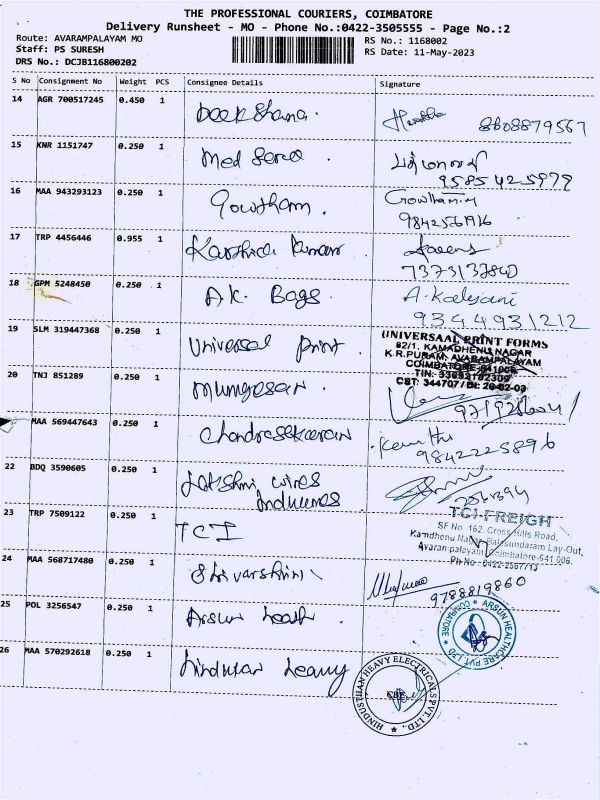 THE PROFESSIONAL COURIERS, COIMBATORE
Delivery Runsheet - MO - Phone No.:0422-3505555 - Page No.:2
Route: AVARAMPALAYAM MO
RS No.: 1168002
Staff: PS SURESH
RS Date: 11-May-2023
DRS No.: DCJB116800202
S No Consignment No Weight PCS Consignee Details Signature
14 AGR 700517245 0.450 1 Deekshana. 8608879567
15 KNR 1151747 0.250 1 Med Serve
9585425979
16 MAA 943293123 0.250 1 Gowtham. Gowthami
9842561916
17 TRP 4456446 0.955 1 Karthick Kumar
7373137840
18 GPM 5248450 0.250 1 A.K. Bags. A. Kalyani
9344931212
19 SLM 319447368 0.250 1 Universal Print.
UNIVERSAAL PRINT FORMS
82/1, KAMADHENU NAGAR
K.R.PURAM, AVARAMPALAYAM
COIMBATORE-641006
TIN: 33692182309
CST: 344707/Dt: 26-02-03
20 TNJ 851289 0.250 1 Murugesan.
MAA 569447643 0.250 1 Chandrasekaran
9842225896
22 BDQ 3590605 0.250 1 Lakshmi wires
Industries
23 TRP 7509122 0.250 1 TCI
TCI-FREIGH
SF No 162, Cross Hills Road,
Kamdhenu Nagar, Balasundaram Lay-Out,
Avarampalayam, Coimbatore-641 006.
Ph No : 0422-2567713
24 MAA 568717480 0.250 1 Shrivarshini
9788819860
25 POL 3256547 0.250 1 Arsun Health
ARSUN HEALTHCARE PVT LTD ★ COIMBATORE ★
26 MAA 570292618 0.250 1 Hindustan Heavy
HINDUSTHAN HEAVY ELECTRICALS PVT. LTD.,
CBE